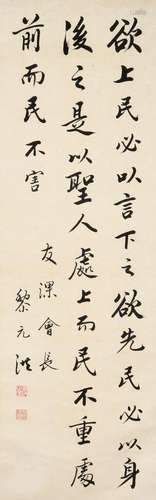 欲上民必以言下之欲先民必以身
後之是以聖人處上而民不重處
前而民不害
友渫會長
黎元洪